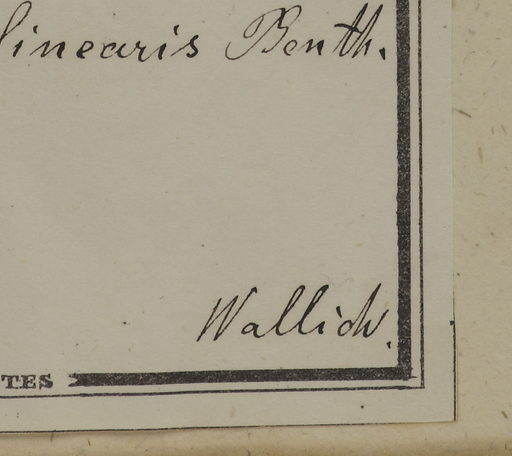 linearis Benth.
Wallich.
TES